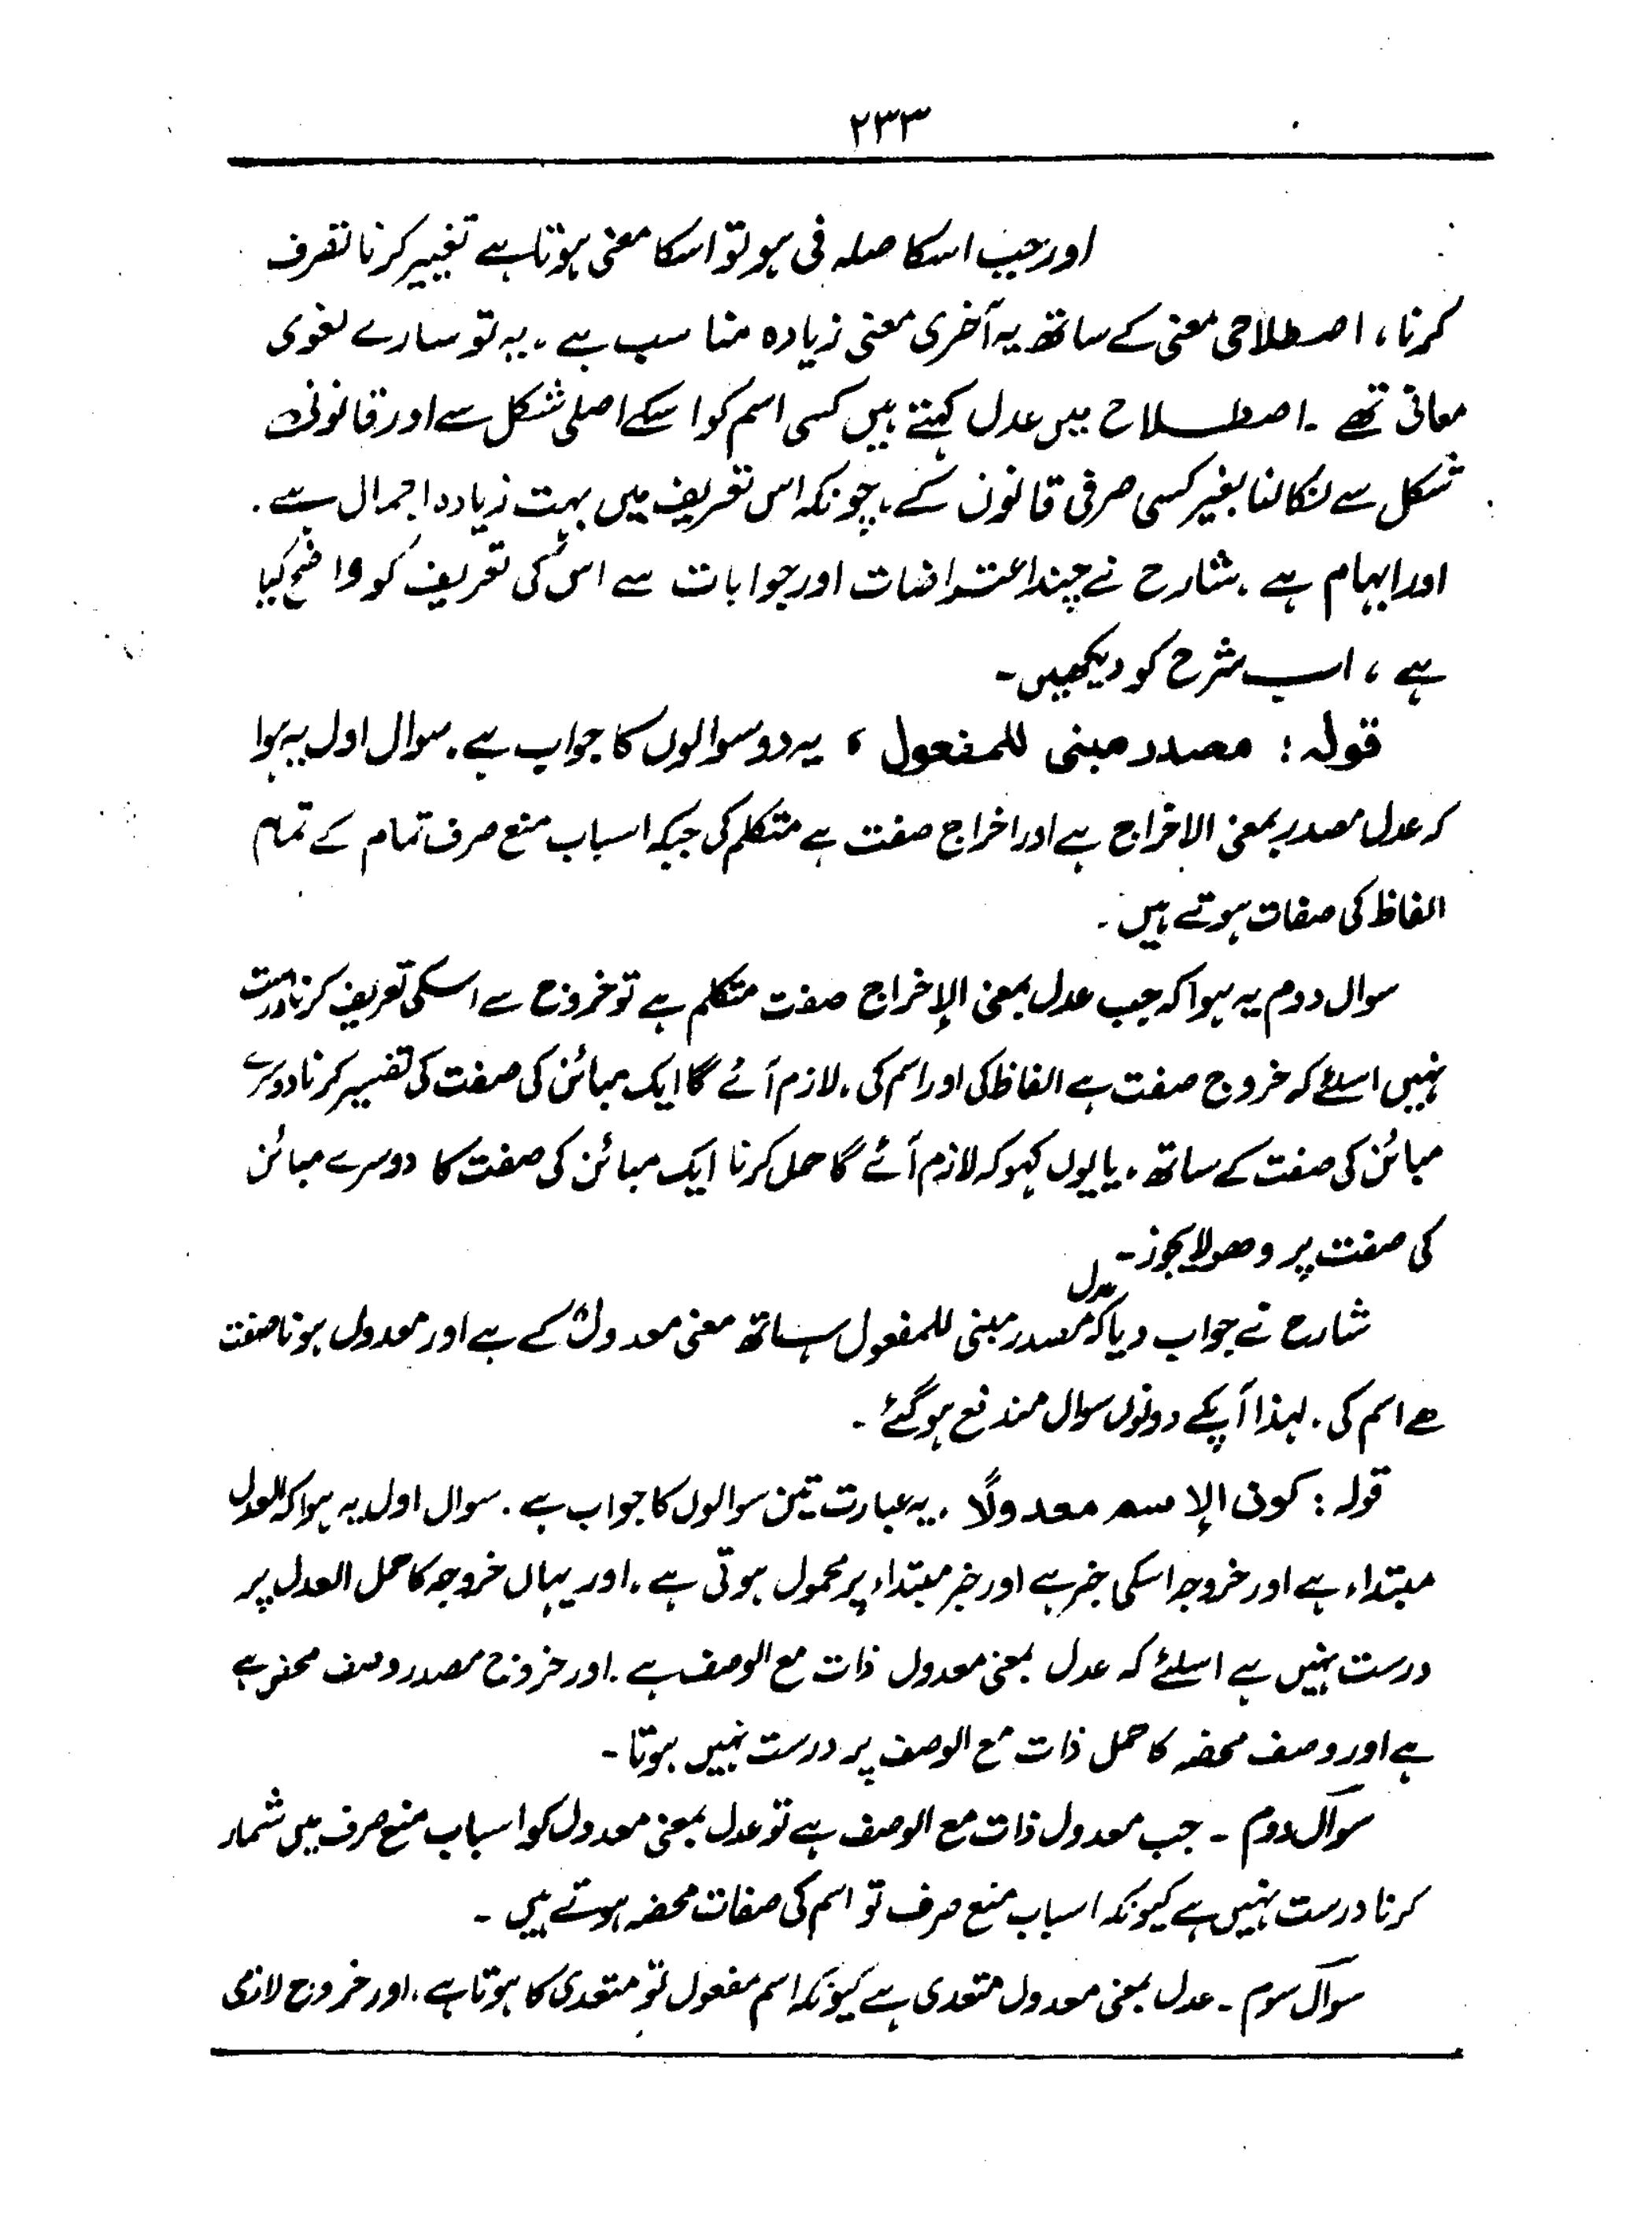 ۲۳۳
اور جب اسکا صلہ فی ہو تو اسکا معنی ہوتا ہے تغییر کرنا تصرف
کرنا، اصطلاحی معنی کے ساتھ یہ آخری معنی زیادہ مناسب ہے ۔ یہ تو سارے لغوی
معانی تھے ۔ اصطلاح میں عدل کہتے ہیں کسی اسم کو اسکے اصلی شکل سے اور قانونی
شکل سے نکالنا بغیر کسی صرفی قانون کے ۔ چونکہ اس تعریف میں بہت زیادہ اجمال ہے ۔
اور ابہام ہے ۔ شارح نے چند اعتراضات اور جوابات سے اس کی تعریف کو واضح کیا
ہے ، اب شرح کو دیکھیں ۔
قولہ : مصدر مبنی للمفعول ، یہ دو سوالوں کا جواب ہے ۔ سوال اول یہ ہوا
کہ عدل مصدر بمعنی الاخراج ہے اور اخراج صفت ہے متکلم کی جبکہ اسباب منع صرف تمام کے تمام
الفاظ کی صفات ہوتے ہیں ۔
سوال دوم یہ ہوا کہ جب عدل بمعنی الإخراج صفت متکلم ہے تو خروج سے اسکی تعریف کرنا درست
نہیں اسلئے کہ خروج صفت ہے الفاظ کی اور اسم کی ۔ لازم آئے گا ایک مبائن کی صفت کی تفسیر کرنا دوسرے
مبائن کی صفت کے ساتھ ۔ یا یوں کہو کہ لازم آئے گا حمل کرنا ایک مبائن کی صفت کا دوسرے مبائن
کی صفت پر وھو لا یجوز ۔
شارح نے جواب دیا کہ عدل مصدر مبنی للمفعول ساتھ معنی معدولٌ کے ہے اور معدول ہونا صفت
ھے اسم کی ۔ لہذا آپکے دونوں سوال مندفع ہو گئے ۔
قولہ : کون الإسم معدولًا ، یہ عبارت تین سوالوں کا جواب ہے ۔ سوال اول یہ ہوا کہ العدل
مبتداء ہے اور خروجہ اسکی خبر ہے اور خبر مبتداء پر محمول ہوتی ہے ۔ اور یہاں خروجہ کا حمل العدل پر
درست نہیں ہے اسلئے کہ عدل بمعنی معدول ذات مع الوصف ہے ۔ اور خروج مصدر وصف محض ہے
ہے اور وصف محضہ کا حمل ذات مع الوصف پر درست نہیں ہوتا ۔
سوال دوم ۔ جب معدول ذات مع الوصف ہے تو عدل بمعنی معدول کو اسباب منع صرف میں شمار
کرنا درست نہیں ہے کیونکہ اسباب منع صرف تو اسم کی صفات محضہ ہوتے ہیں ۔
سوال سوم ۔ عدل بمعنی معدول متعدی ہے کیونکہ اسم مفعول تو متعدی کا ہوتا ہے ، اور خروج لازمی